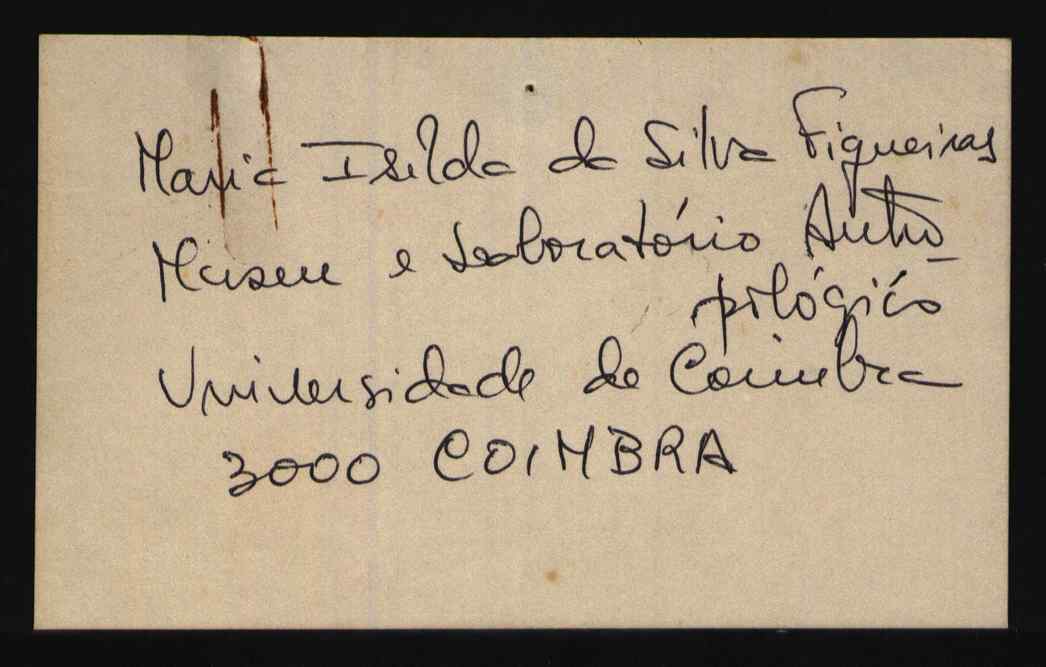 Maria Isilda da Silva Figueiras
Museu e Laboratório Antro
pológico
Universidade de Coimbra
3000 COIMBRA